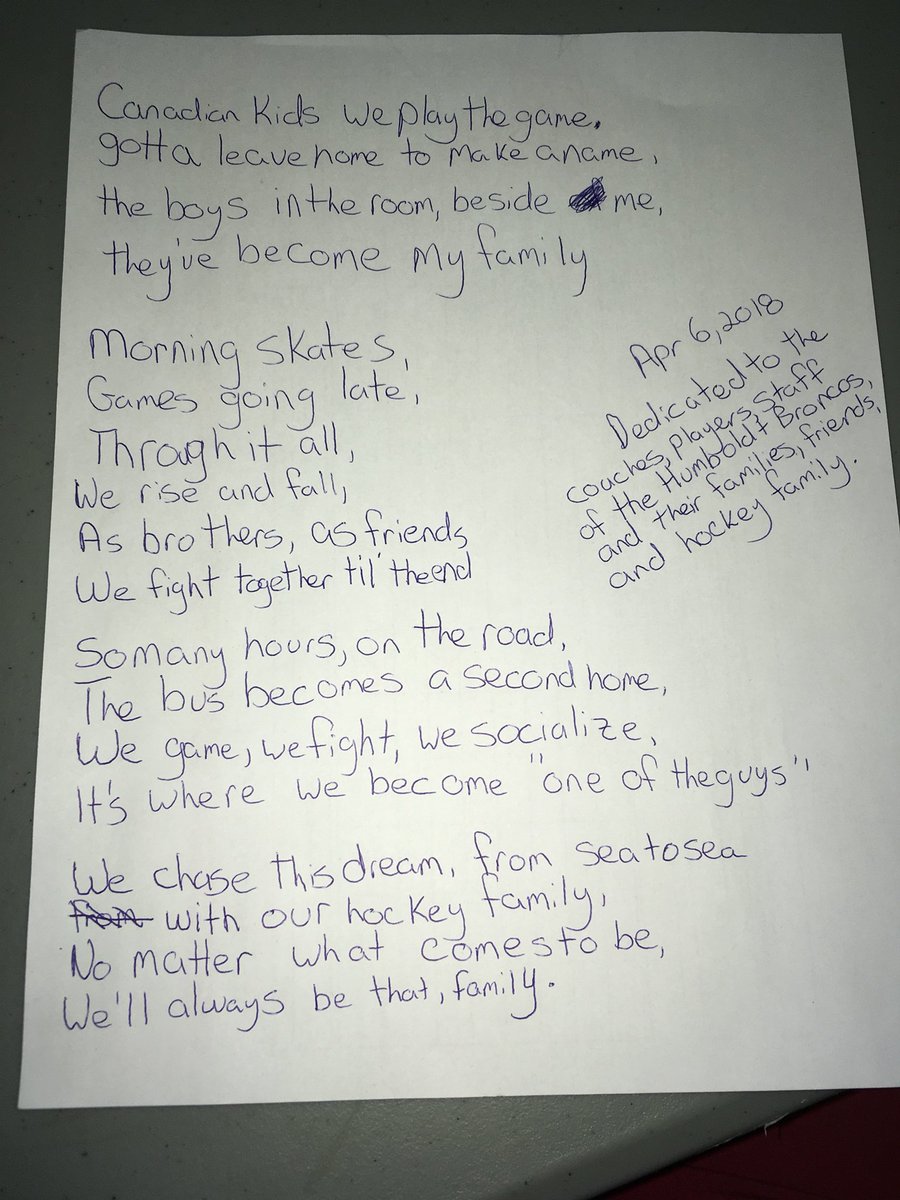 Canadian Kids we play the game.
gotta leave home to make a name,
the boys in the room, beside me,
they've become my family
Morning skates,
Games going late,
Through it all,
We rise and fall,
As brothers, as friends
We fight together til' the end
So many hours, on the road,
The bus becomes a second home,
We game, we fight, we socialize,
It's where we become "one of the guys",
We chase this dream, from sea to sea
from with our hockey family,
No matter what comes to be,
We'll always be that, family.
Apr 6, 2018
Dedicated to the
coaches, players, staff
of the Humboldt Broncos,
and their families, friends,
and hockey family.